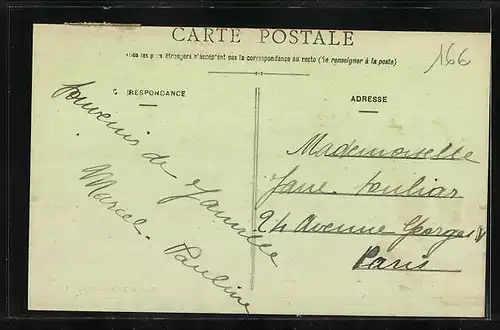 CARTE POSTALE
Tous les pays étrangers n'acceptent pas la correspondance au recto (Se renseigner à la poste)
166
C RRESPONDANCE
ADRESSE
Souvenir de
Marcel. Pauline
Mademoiselle
Jane
24 Avenue Georges V
Paris